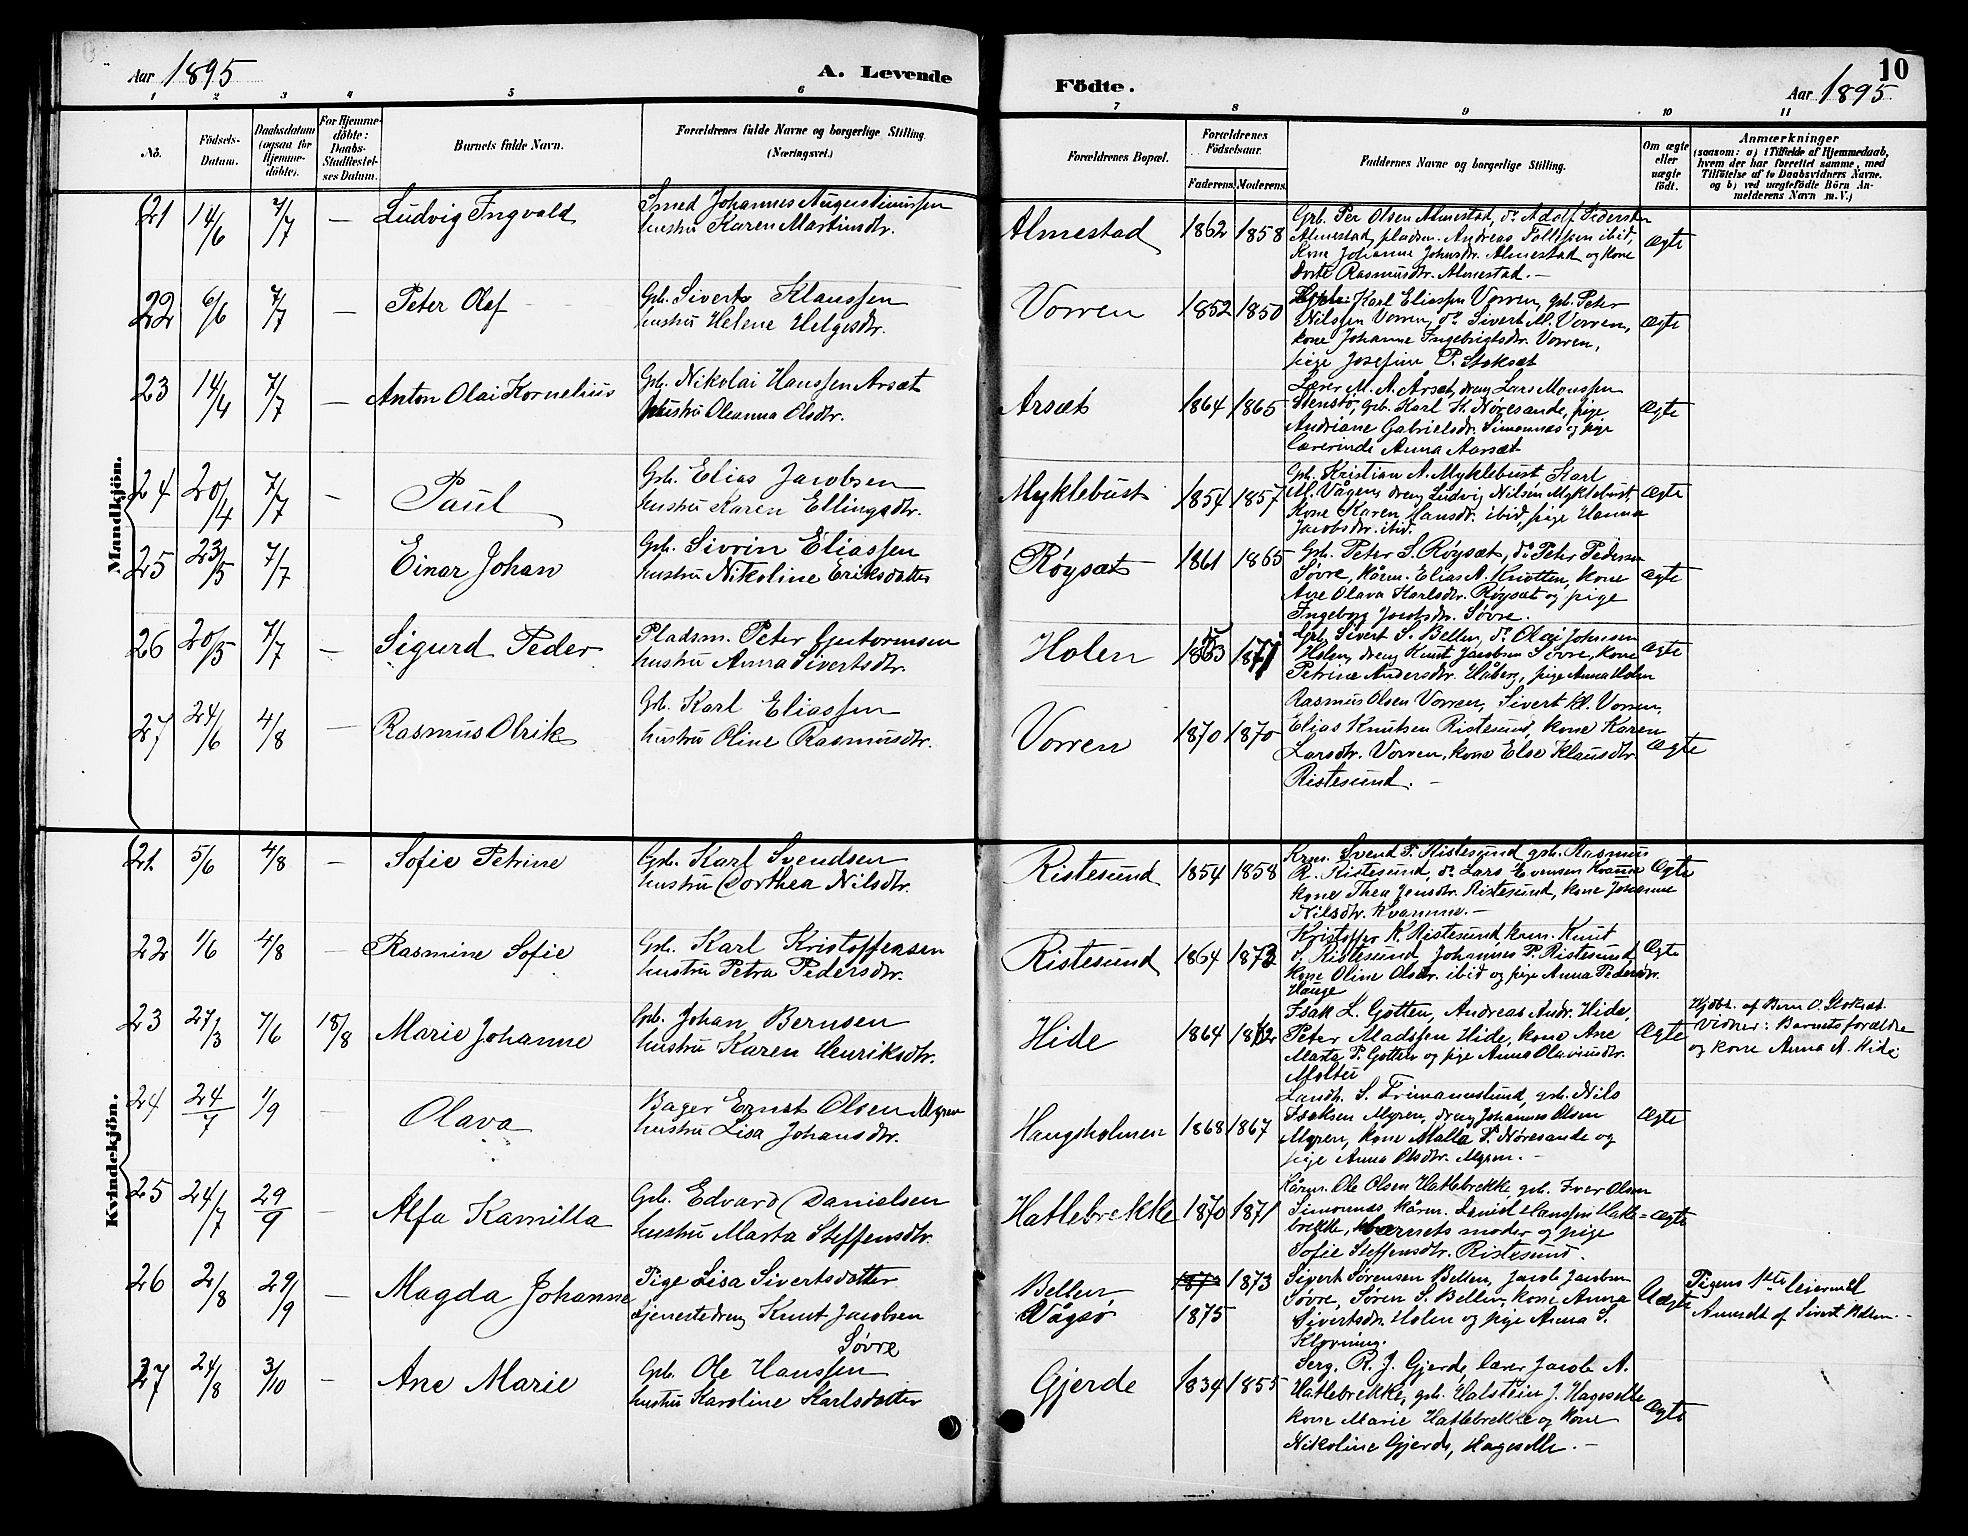 Aar 1895
A. Levende
Födte.
Aar 1895
10
1 2 3 4 5 6 7 8 9 10 11
No.
Födsels-
Datum.
Daabsdatum
(ogsaa for
Hjemme-
döbte).
For Hjemme-
döbte:
Daabs-
Stadfæstel-
ses Datum.
Barnets fulde Navn.
Forældrenes fulde Navne og borgerlige Stilling.
(Næringsvei.)
Forældrenes Bopæl.
Forældrenes
Födselsaar.
Faderens. Moderens.
Faddernes Navne og borgerlige Stilling.
Om ægte
eller
uægte
født.
Anmærkninger
(saasom: a) i Tilfælde af Hjemmedaab,
hvem der har forrettet samme, med
Tilføielse af to Daabsvidners Navne,
og b) ved uægtefødte Börn An-
melderens Navn m. V.)
Mandkjön.
21 14/6 7/7 — Ludvig Ingvald
Smed Johannes Augustinussen
hustru Karen Martinsdtr.
Almestad 1862 1858
Grb. Per Olsen Almestad, do Adolf Pedersen
Almestad, pladsm. Andreas ibid,
Kone Johanne Johnsdtr. Almestad og kone
Dorte Rasmusdtr. Almestad. —
Ægte
22 6/6 7/7 — Peter Olaf
Grb. Sivert Klaussen
hustru Helene Helgesdtr.
Vorren 1852 1850
Karl Eliassen Vorren, grb. Peter
Nilssen Vorren, do Sivert M. Vorren,
kone Johanne Ingebrigtsdtr. Vorren,
pige Josefine P. Stoksæt
Ægte
23 14/4 7/7 — Anton Olai Kornelius
Grb. Nikolai Hanssen Arsæt
hustru Oleanna Olsdtr.
Arsæt 1864 1865
Lærer M. A. Årsæt, dreng Lars Monssen
Stenstø, grb. Karl K. Nøresande, pige
Andriane Gabrielsdtr. Simonnæs og pige
Lærerinde Anna Aarsæt
Ægte
24 20/4 7/7 — Paul
Grb. Elias Jacobsen
hustru Karen Ellingsdtr.
Myklebust 1854 1857
Grb. Kristian A. Myklebust Karl
M. Vågen, dreng Ludvig Nilsen Myklebust,
Kone Karen Hansdtr. ibid, pige Hanna
Jacobsdtr. ibid.
Ægte
25 23/5 7/7 Einar Johan
Grb. Sivrin Eliassen
hustru Nikoline Eriksdatter
Röysæt 1861 1865
Grb. Peter S. Röysæt, do Peter Pedersen
Søvre, kårm. Elias A. Knotten, kone
Ane Olava Karlsdtr. Röysæt og pige
Ingeborg Jacobsdtr. Søvre.
Ægte
26 20/5 7/7 — Sigurd Peder
Pladsm. Peter Guttormsen
hustru Anna Sivertsdtr.
Holen 1871
Grb. Sivert S. Bellen, do Olai Johnsen
Holen, dreng Knut Jacobsen Søvre, kone
Petrine Andersdtr. Håberg, pige Anna Holen
Ægte
27 24/6 4/8 — Rasmus Olrik
Grb. Karl Eliassen
hustru Oline Rasmusdtr.
Vorren 1870 1870
Rasmus Olsen Vorren, Sivert Kl. Vorren,
Elias Knutsen Ristesund, kone Karen
Larsdtr. Vorren, kone Else Klausdtr.
Ristesund. —
Ægte
Kvindekjön.
21. 5/6 4/8 — Sofie Petrine
Grb. Karl Svendsen
hustru Dorthea Nilsdtr.
Ristesund 1854 1858
Krm. Svend P. Ristesund, grb. Rasmus
R. Ristesund, do Lars Evensen Kvamme
kone Thea Jensdtr. Ristesund, kone Johanne
Nilsdtr. Kvamme. —
Ægte
22 1/6 4/8 — Rasmine Sofie
Grb. Karl Kristoffersen
hustru Petra Pedersdtr.
Ristesund 1864 1872
Kristoffer K. Ristesund, krm. Knut
S. Ristesund, Johannes P. Ristesund
kone Oline Olsdtr. ibid og pige Anna Pedersdtr.
Hauge
Ægte
23 27/3 7/6 18/8 Marie Johanne
Grb. Johan Bernsen
hustru Karen Henriksdtr.
Hide 1864 1872
Isak L. Gotten, Andreas Andr. Hide,
Peter Madssen Hide, kone Ane
Marta P. Gotten og pige Anna Olaviusdtr.
Moltu
Ægte
Hjdbt. af Bern O. Stoksæt.
Vidner: Barnets forældre
og kone Anna A. Hide
24 24/7 1/9 — Olava
Bager Ernst Olsen Myren
hustru Lisa Johansdtr.
Haugsholmen 1868 1867
Landh. S. Frimannslund, grb. Nils
Isaksen Myren, dreng Johannes Olsen
Myren, kone Malla P. Nøresande og
pige Anna Olsdtr. Myren. —
Ægte
25 24/7 29/9 — Alfa Kamilla
Grb. Edvard Danielsen
hustru Marta Steffensdtr.
Hatlebrekke 1870 1871
Kårm. Ole Olsen Hatlebrekke, grb. Iver Olsen
Simonnæs kårm. Daniel Hanssen Hatle=
brekke, barnets moder og pige
Sofie Steffensdtr. Ristesund.
Ægte
26 2/8 29/9 — Magda Johanne
Pige Lisa Sivertsdatter
tjenestedreng Knut Jacobsen
Søvre
Bellen 1873
Vågsø 1875
Sivert Sørensen Bellen, Jacob Jacobsen
Søvre, Søren S. Bellen, kone Anna
Sivertsdtr. Holen og pige Anna S.
Klovning.
Uægte
Pigens 1ste leiermål
Anmeldt af Sivert
27 24/8 3/10 — Ane Marie
Grb. Ole Hanssen
hustru Karoline Karlsdatter
Gjerde 1834 1855
Serg. R. J. Gjerde, lærer Jacob A.
Hatlebrekke, grb. Halstein J. Hageselle
kone Marie Hatlebrekke og kone
Nikoline Gjerde, Hageselle. —
Ægte